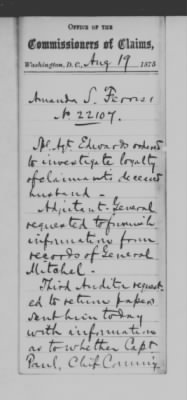 OFFICE OF THE
Commissioners of Claims,
Washington, D.C., Aug 19 1875
Amanda S. Ferriss
No 22107.
Spl. Agt Edwards ordered
to investigate loyalty
of claimants deceased
husband -
Adjutant General
requested to furnish
information from
records of General
Mitchel -
Third Auditor request
ed to return papers
sent him today
with information
as to whether Capt
Paul, Chief Commiy